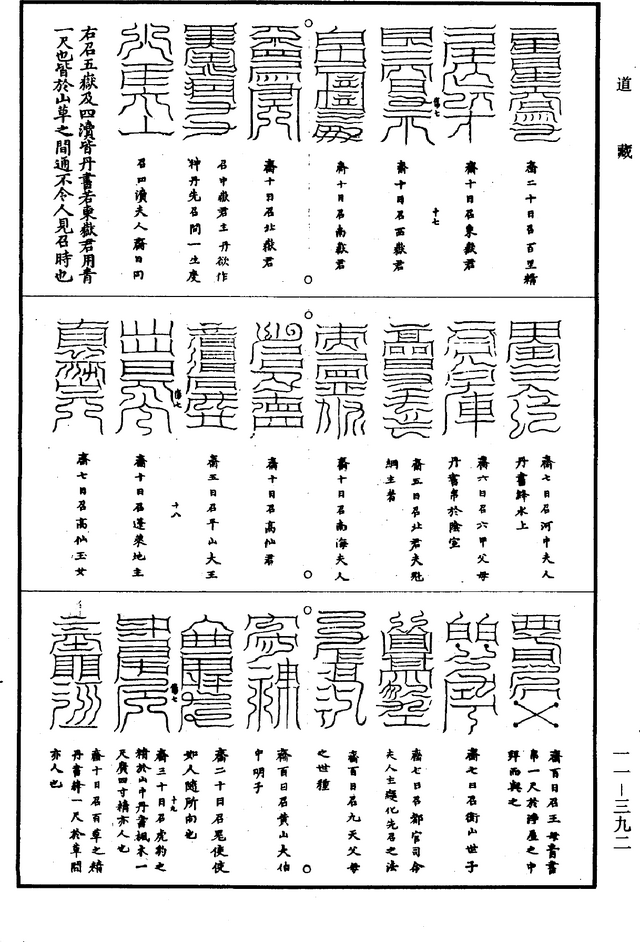 道藏
齋二十日召百里精
齋十日召東嶽君
齋十日召西嶽君
齋十日召南嶽君
齋十日召北嶽君
召中嶽君主丹欲作
神丹先召問一生度
召四瀆夫人齋日同
右召五嶽及四瀆皆丹書若東嶽君用青
一尺也皆於山草之間通不令人見召時也
十七
齋七日召河中夫人
丹書絳水上
齋六日召六甲父母
丹書帛於陰室
齋五日召北君夫
綱主者
齋十日召南海夫人
齋十日召高仙君
齋五日召平山大王
十八
齋十日召蓬萊地主
齋七日召高仙玉女
齋百日召王母青書
帛一尺於淨屋之中
拜而與之
齋七日召衡山世子
齋七日召都官司命
夫人主變化先召之法
齋百日召九天父母
之世種
齋百日召黄山大伯
中明子
齋二十日召鬼使使
如人隨所向也
十九
齋三十日召虎豹之
精於山中丹書楓木一
尺廣四寸精亦人也
齋十日召百草之精
丹書絳一尺於草間
亦人也
一一－三九二